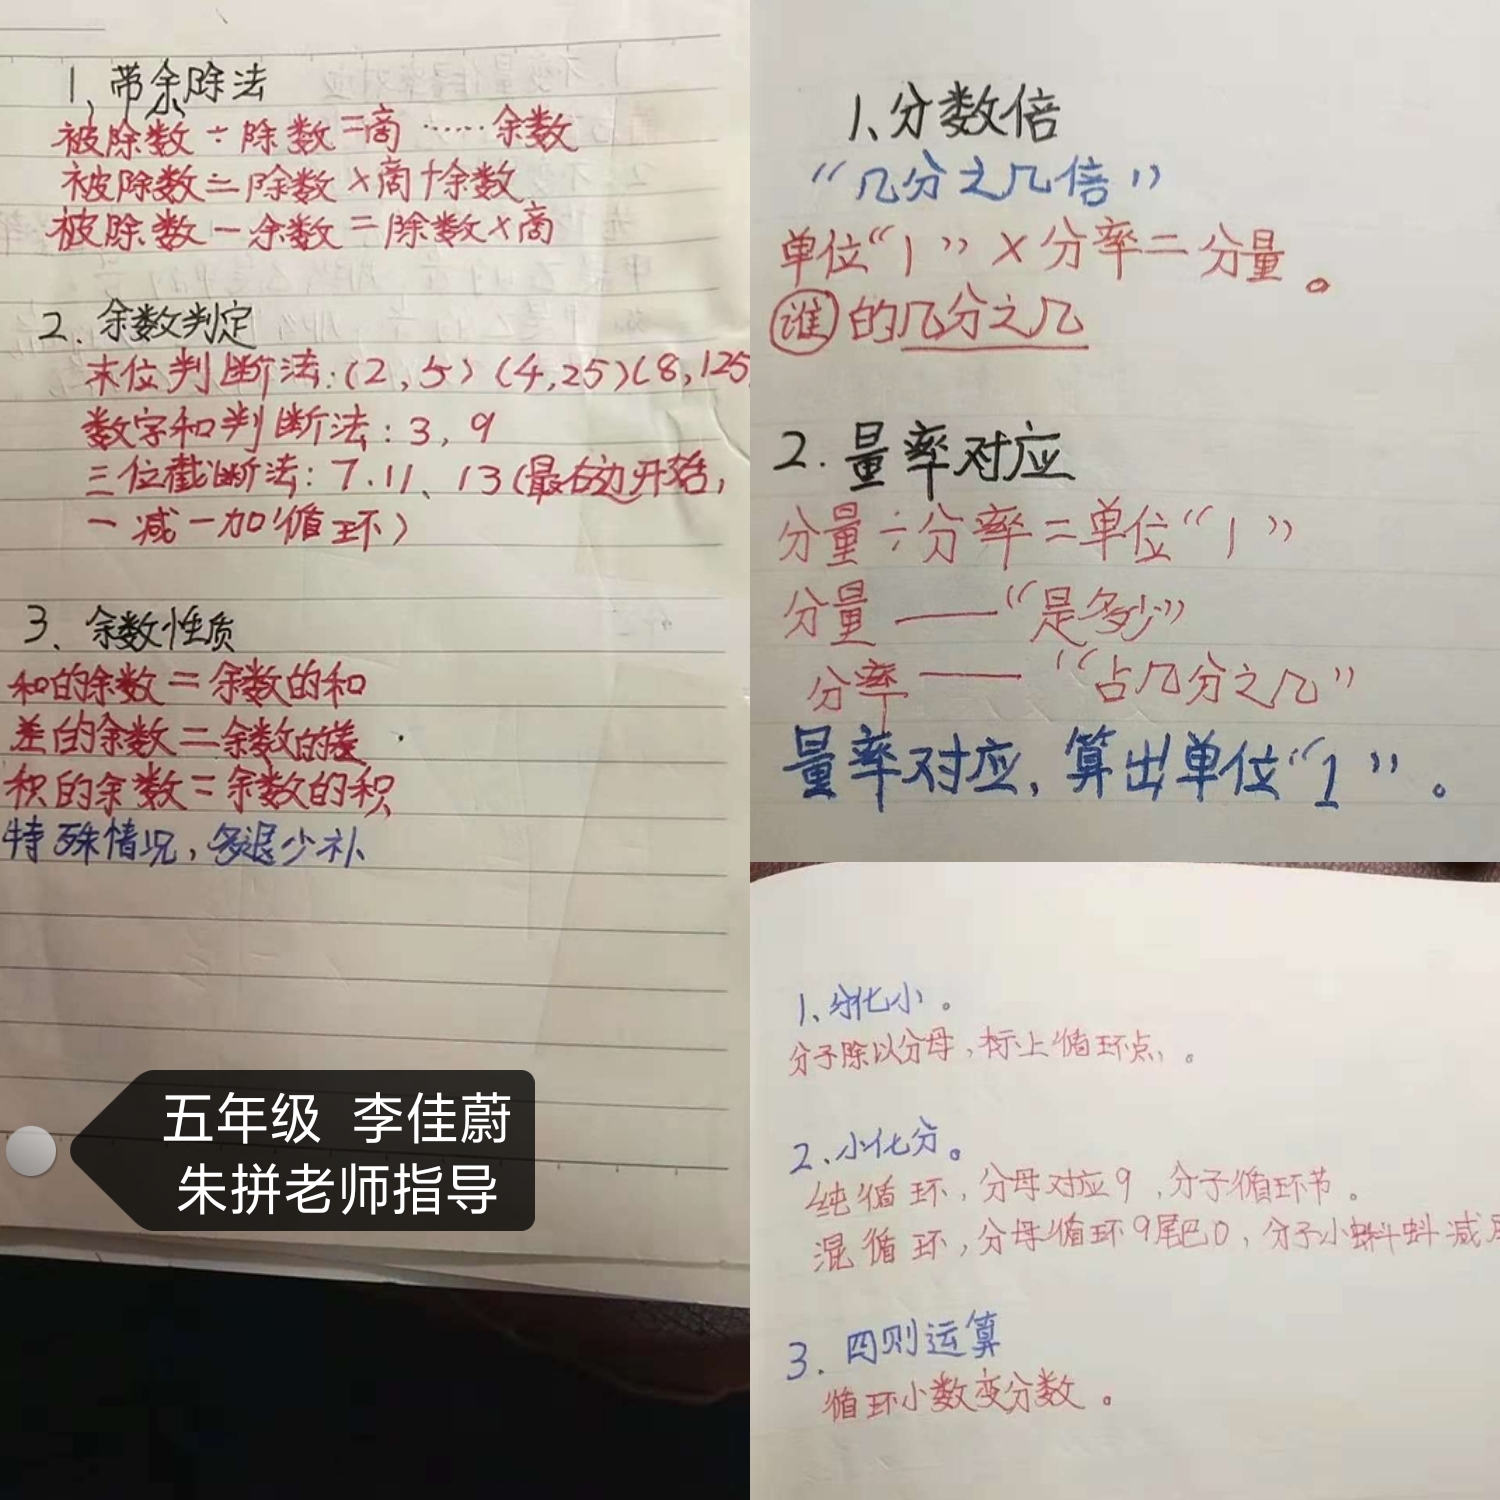 1、带余除法
被除数÷除数=商……余数
被除数=除数×商+余数
被除数-余数=除数×商
2.余数判定
末位判断法:(2,5)(4,25)(8,125
数字和判断法:3,9
三位截断法:7.11、13(最右边开始,
一减一加循环)
3、余数性质
和的余数=余数的和
差的余数=余数的差
积的余数=余数的积
特殊情况,多退少补
五年级 李佳蔚
朱拼老师指导
1、分数倍
“几分之几倍”
单位“1”×分率=分量。
谁的几分之几
2.量率对应
分量÷分率=单位“1”
分量——“是多少”
分率——“占几分之几”
量率对应,算出单位“1”。
1、分化小。
分子除以分母,标上循环点。
2、小化分。
纯循环,分母对应9,分子循环节。
混循环,分母循环9尾巴0,分子小蝌蚪减
3.四则运算
循环小数变分数。